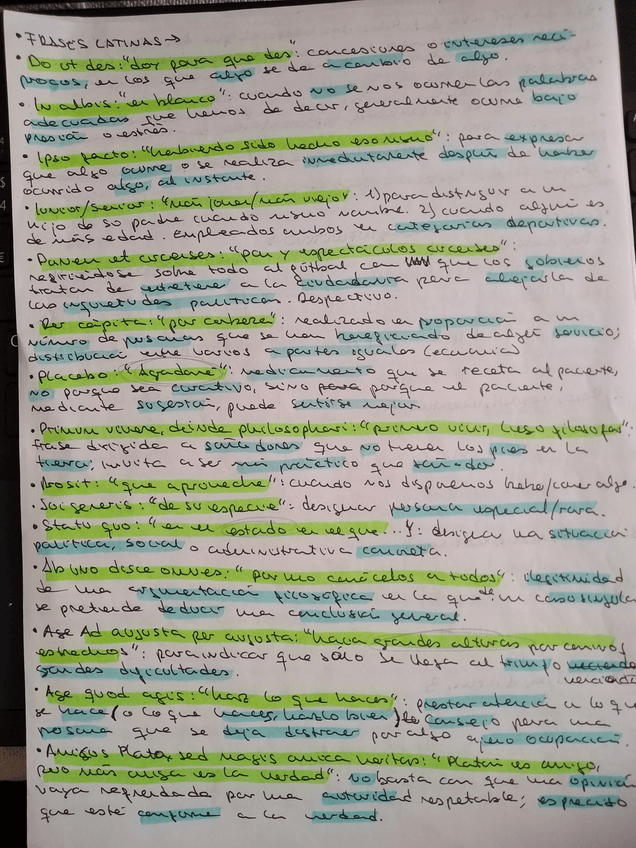 • FRASES LATINAS →
• Do ut des: "doy para que des": concesiones o intereses recí-
procos, en los que algo se da a cambio de algo.
• In albis: "en blanco": cuando no se nos ocurren las palabras
adecuadas que hemos de decir, generalmente ocurre bajo
presión o estrés.
• Ipso facto: "habiendo sido hecho eso mismo": para expresar
que algo ocurre o se realiza inmediatamente después de haber
ocurrido algo, al instante.
• Iunior/senior: "más joven/más viejo": 1) para distinguir a un
hijo de su padre cuando mismo nombre. 2) cuando alguien es
de más edad. Empleados ambos en categorías deportivas.
• Panem et circenses: "pan y espectáculos circenses":
refiriéndose sobre todo al fútbol con que los gobiernos
tratan de entretener a la ciudadanía para alejarla de
las inquietudes políticas. Despectivo.
• Per cápita: "por cabeza": realizado en proporción a un
número de personas que se han beneficiado de algún servicio;
distribución entre varios a partes iguales (economía)
• Placebo: "Agradaré": medicamento que se receta al paciente,
no porque sea curativo, sino porque el paciente,
mediante sugestión, puede sentirse mejor.
• Primum vivere, deinde philosophari: "primero vivir, luego filosofar":
frase dirigida a soñadores que no tienen los pies en la
tierra; invita a ser más práctico que soñador.
• Prosit: "que aproveche": cuando nos disponemos beber/comer algo.
• Sui generis: "de su especie": designar persona especial/rara.
• Statu quo: "en el estado en el que...": designar una situación
política, social o administrativa concreta.
• Ab uno disce omnes: "por uno conócelos a todos": ilegitimidad
de una argumentación filosófica en la que de un caso singular
se pretende deducir una conclusión general.
• Age Ad augusta per angusta: "hacia grandes alturas por caminos
estrechos": para indicar que sólo se llega al triunfo venciendo
grandes dificultades.
• Age quod agis: "haz lo que haces": prestar atención a lo que
se hace (o lo que haces, hazlo bien) consejo para una
persona que se deja distraer por algo ajeno ocupación.
• Amigos Plato, sed magis amica veritas: "Platón es amigo,
pero más amiga es la verdad": no basta con que una opinión
vaya refrendada por una autoridad respetable; es preciso
que esté conforme a la verdad.